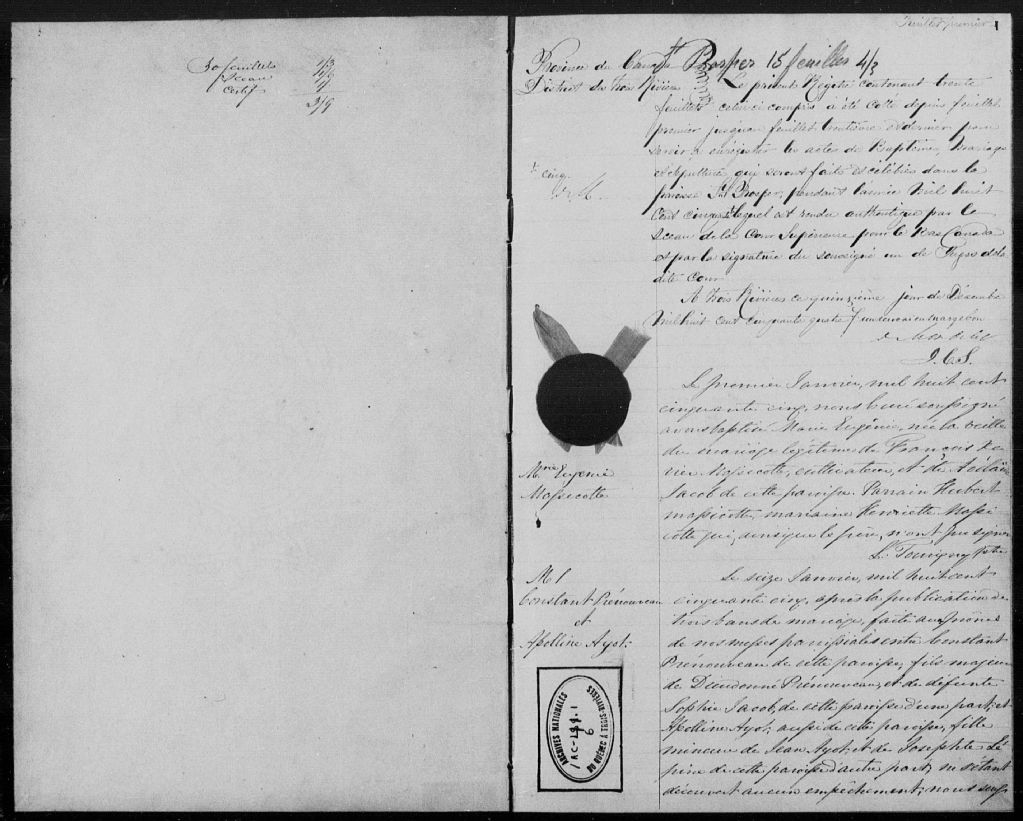 30 feuillets 1/3
Sceau 1/6
Certif 1/
3/9
Feuillet premier 1
Province du Canada St Prosper 15 feuilles 4/3
District des trois Rivières Le présent Régistre contenant trente
feuillets celui ci compris a été cotté depuis feuillet
premier jusqu'au feuillet trentième et dernier pour
servir à enrégistrer les actes de Baptême, Mariage
et Sépulture qui seront faits et célébrés dans la
paroisse St Prosper, pendant l'année Mil huit
cent cinqte lequel est rendu authentique par le
sceau de la Cour Supérieure pour le Bas Canada
et par la signature du soussigné un de Juges de la
dite Cour
t cinq.
A trois Rivières ce quinzième jour de Décembre
Mil huit cent cinquante quatre un renvoi en marge bon
J. C. S.
Le premier Janvier, mil huit cent
cinquante cinq, nous curé soussigné
avons baptisé Marie Eugénie, née la veille
du mariage légitime de François Xa-
vier Massicotte, cultivateur, et de
Jacob de cette paroisse. Parrain Hubert
massicotte, marraine Henriette Massi
cotte qui, ainsi que le père, n'ont pu signer
L. Tourigny Ptre
M. Eugenie
Massicotte
Le seize Janvier, mil huit cent
cinquante cinq, après la publication de
trois bans de mariage, faite aux prônes
de nos messes paroissiales entre Constant
Prénouveau de cette paroisse, fils majeur
de Dieudonné Prénouveau, et de défunte
Sophie Jacob, de cette paroisse d'une part, et
Apolline Ayot, aussi de cette paroisse, fille
mineure de Jean Ayot et de Josephte Lé
pine de cette paroisse d'autre part; ne s'étant
découvert aucun empêchement; nous souss
M 1
Constant Prénouveau
et
Apolline Ayot.
ARCHIVES NATIONALES
6
DU QUÉBEC À TROIS-RIVIÈRES